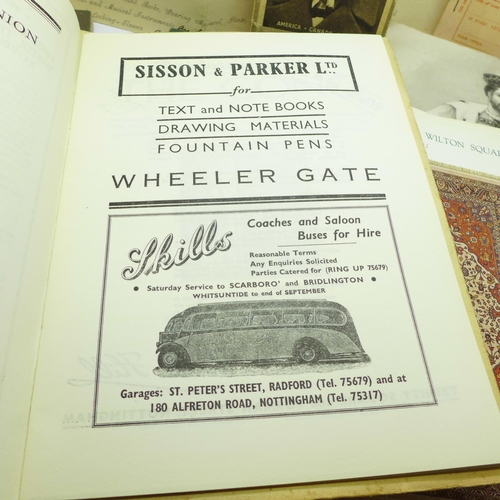 NION
AMERICA - CANADA
WILTON SQUAR
SISSON & PARKER LTD.
for
TEXT and NOTE BOOKS
DRAWING MATERIALS
FOUNTAIN PENS
WHEELER GATE
Skills
Coaches and Saloon
Buses for Hire
Reasonable Terms
Any Enquiries Solicited
Parties Catered for (RING UP 75679)
• Saturday Service to SCARBORO' and BRIDLINGTON •
WHITSUNTIDE to end of SEPTEMBER
Garages: ST. PETER'S STREET, RADFORD (Tel. 75679) and at
180 ALFRETON ROAD, NOTTINGHAM (Tel. 75317)